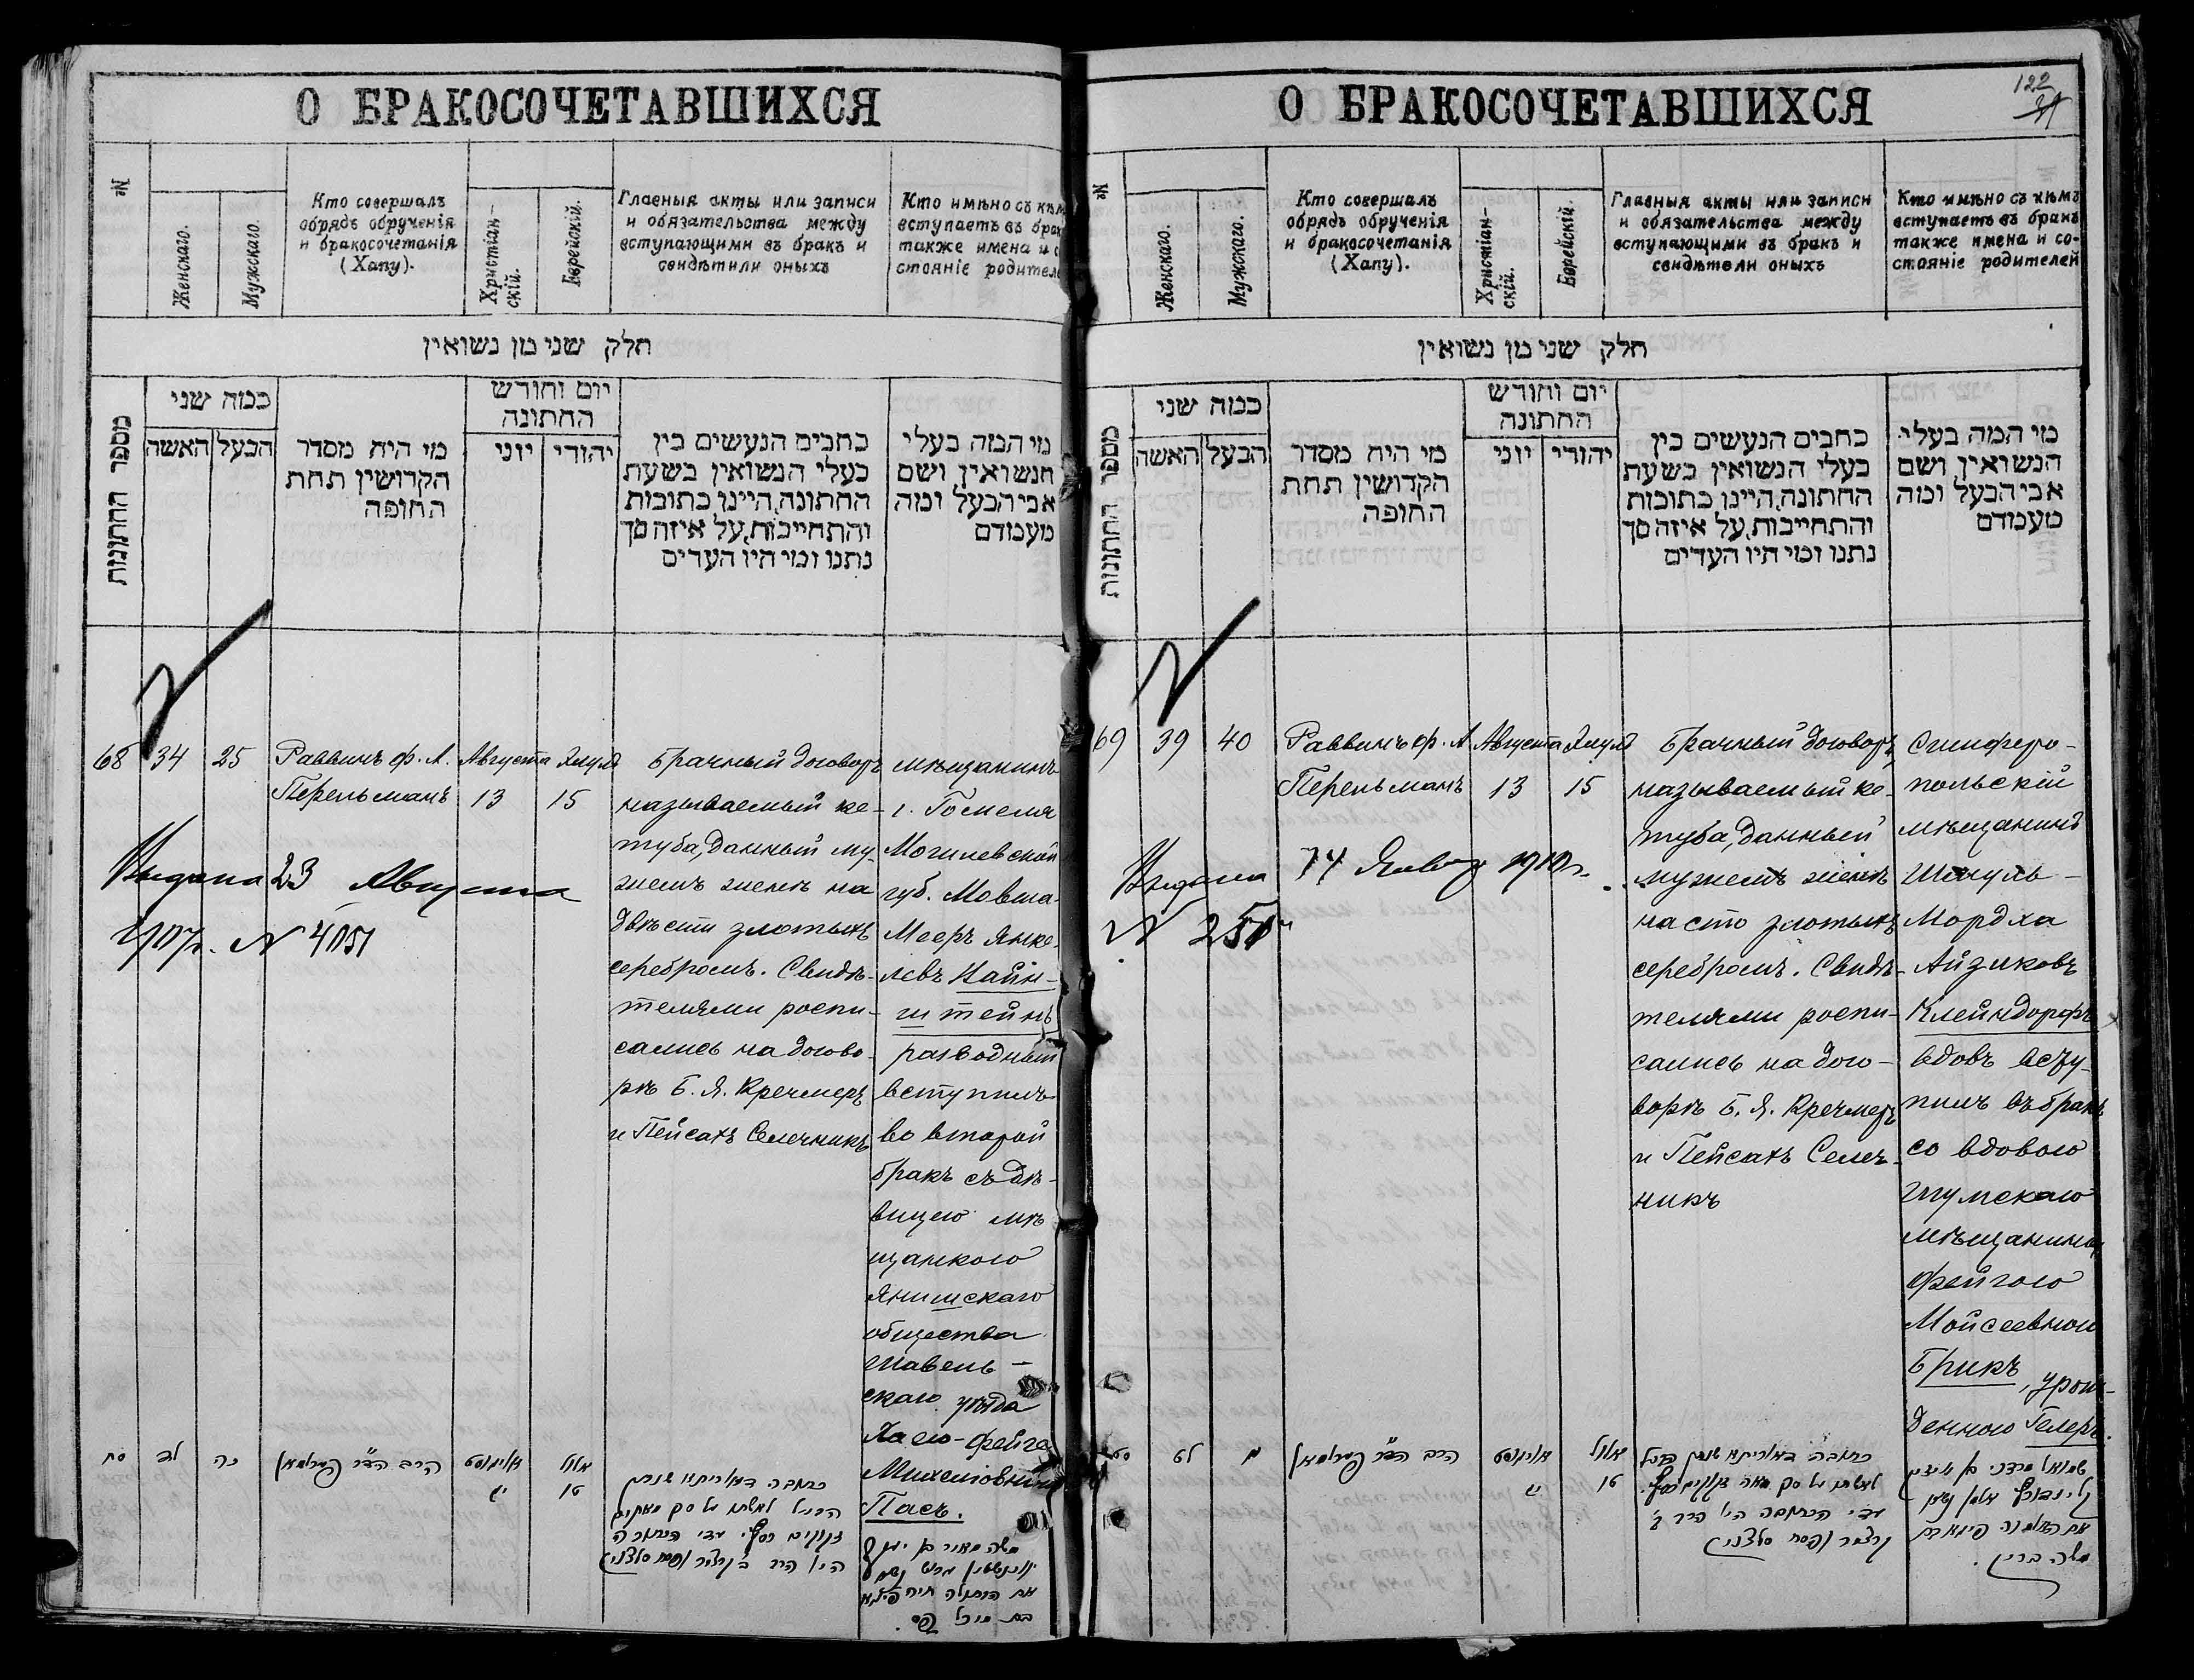 О БРАКОСОЧЕТАВШИХСЯ
№
Женскаго.
Мужскаго.
Кто совершалъ
обрядъ обрученія
и бракосочетанія
(Хапу).
Христіан-
скій.
Еврейскій.
Главныя акты или записи
и обязательства между
вступающими въ бракъ и
свидѣтили оныхъ
Кто имѣно съ кѣм
вступаетъ въ бра
также имена и с
стояніе родител
חלק שני מן נשואין
מספר החתונות
כמה שני
האשה
הבעל
מי היה מסדר
הקדושין תחת
החופה
יום וחודש
החתונה
יוני
יהודי
כתבים הנעשים בין
בעלי הנשואין בשעת
החתונה, היינו כתובות
והתחייבות, על איזה סך
נתנו ומי היו העדים
מי המה בעלי
הנשואין ושם
אבי הבעל ומה
מעמדם
68
34
25
Раввинъ Ф. Л.
Перельманъ
Августа
13
Элулъ
15
Брачный договоръ
называемый ке-
туба, данный му-
жемъ женѣ на
двѣсти злотыхъ
серебромъ. Свидѣ-
телями роспи-
сались на догово-
рѣ Б. Я. Кречмеръ
и Пейсахъ Селечникъ
мѣщанинъ
г. Гомеля
Могилевской
губ. Мовша-
Мееръ Янке-
левъ Вайн-
штейнъ
разводный
вступилъ
во второй
бракъ съ дѣ-
вицею мѣ
щанкою
Янишскаго
общества
Шавель-
скаго уѣзда
Хаею-Фейге
Михелiовною
Пасъ.
Выдана 23 Августа
1907г. N 4051
סח
לד
כה
הרב הד״ר פערלמאן
אויגוסט
יג
אלול
טו
כתובה דאורייתא שנתן
הבעל לאשתו על סך מאתים
זקוקים כסף. עדי הכתובה
היו הרב ב קרצמר ופסח סלצניק
משה מאיר בן יעקב
ווינשטיין גרוש נשא
את הבתולה חיה פייגא
בת מיכל פס.
О БРАКОСОЧЕТАВШИХСЯ
122
№
Женскаго.
Мужскаго.
Кто совершалъ
обрядъ обрученія
и бракосочетанія
(Хапу).
Христіан-
скій.
Еврейскій.
Главныя акты или записи
и обязательства между
вступающими въ бракъ и
свидѣтели оныхъ
Кто имѣно съ кѣмъ
вступаетъ въ бракъ
также имена и со-
стояніе родителей
חלק שני מן נשואין
מספר החתונות
כמה שני
האשה
הבעל
מי היה מסדר
הקדושין תחת
החופה
יום וחודש
החתונה
יוני
יהודי
כתבים הנעשים בין
בעלי הנשואין בשעת
החתונה, היינו כתובות
והתחייבות, על איזה סך
נתנו ומי היו העדים
מי המה בעלי
הנשואין ושם
אבי הבעל ומה
מעמדם
69
39
40
Раввинъ Ф. Л
Перельманъ
Августа
13
Элулъ
15
Брачный договоръ
называемый ке-
туба, данный
мужемъ женѣ
на сто злотыхъ
серебромъ. Свидѣ-
телями роспи-
сались на дого-
ворѣ Б. Я. Кречмеръ
и Пейсахъ Селеч-
никъ
Симферо-
польскій
мѣщанинъ
Шмуль-
Мордха
Айзиковъ
Клейндорфъ
вдовъ всту-
пилъ въ бракъ
со вдовою
Шумскаго
мѣщанина
Фейгою
Мойсеевною
Брикъ, урож-
денною Гелеръ.
Выдана 14 Янв 1910г.
N 251
סט
לט
מ
הרב הד״ר פערלמאן
אויגוסט
יג
אלול
טו
כתובה דאורייתא שנתן הבעל
לאשתו על סך מאה זקוקים כסף.
עדי הכתובה היו הרב ב
קרצמר ופסח סלצניק
שמואל מרדכי בן אייזיק
קליינדורף אלמן נשא
את האלמנה פייגא בת
משה בריק.